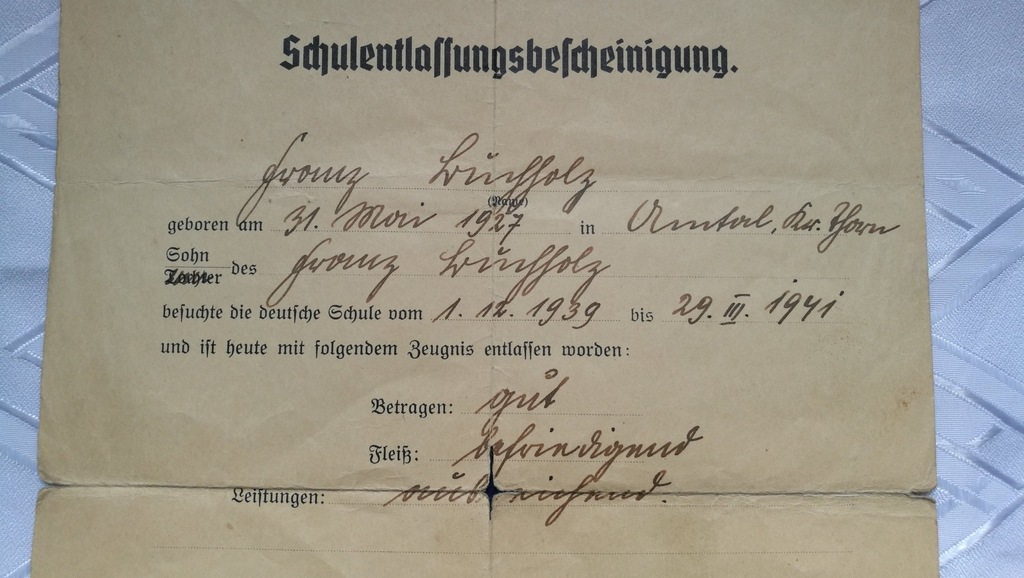 Schulentlassungsbescheinigung.
Franz Buchholz
(Name)
geboren am 31. Mai 1927 in Amtal, Kr. Thorn
Sohn
Tochter des Franz Buchholz
besuchte die deutsche Schule vom 1. 12. 1939 bis 29. III. 1941
und ist heute mit folgendem Zeugnis entlassen worden:
Betragen: gut
Fleiß: befriedigend
Leistungen: ausreichend.